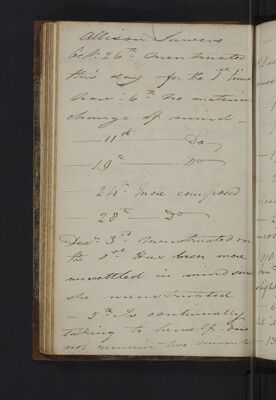 Allison
Oct. 26th Menstruated
this day for the 1st time
Nov: 6th No material
change of mind —
— 11th Do
— 19th — Do —
— 24th more composed
— 28th — Do
Decr. 3rd Menstruated on
the 1st. Has been more
unsettled in mind since
she menstruated
— 5th Is continually
talking to herself. Does
not remain two minutes